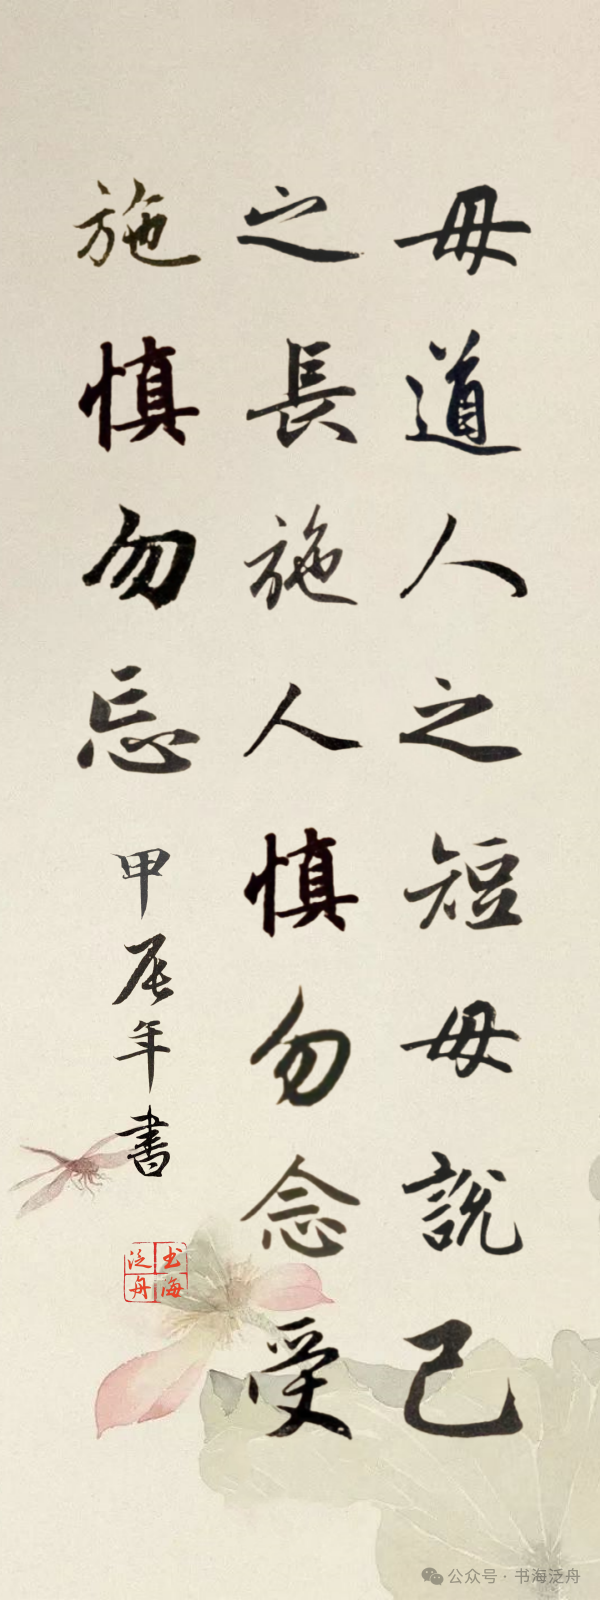 毋道人之短毋說己
之長施人慎勿念受
施慎勿忘
甲辰年書
书海
泛舟
公众号·书海泛舟